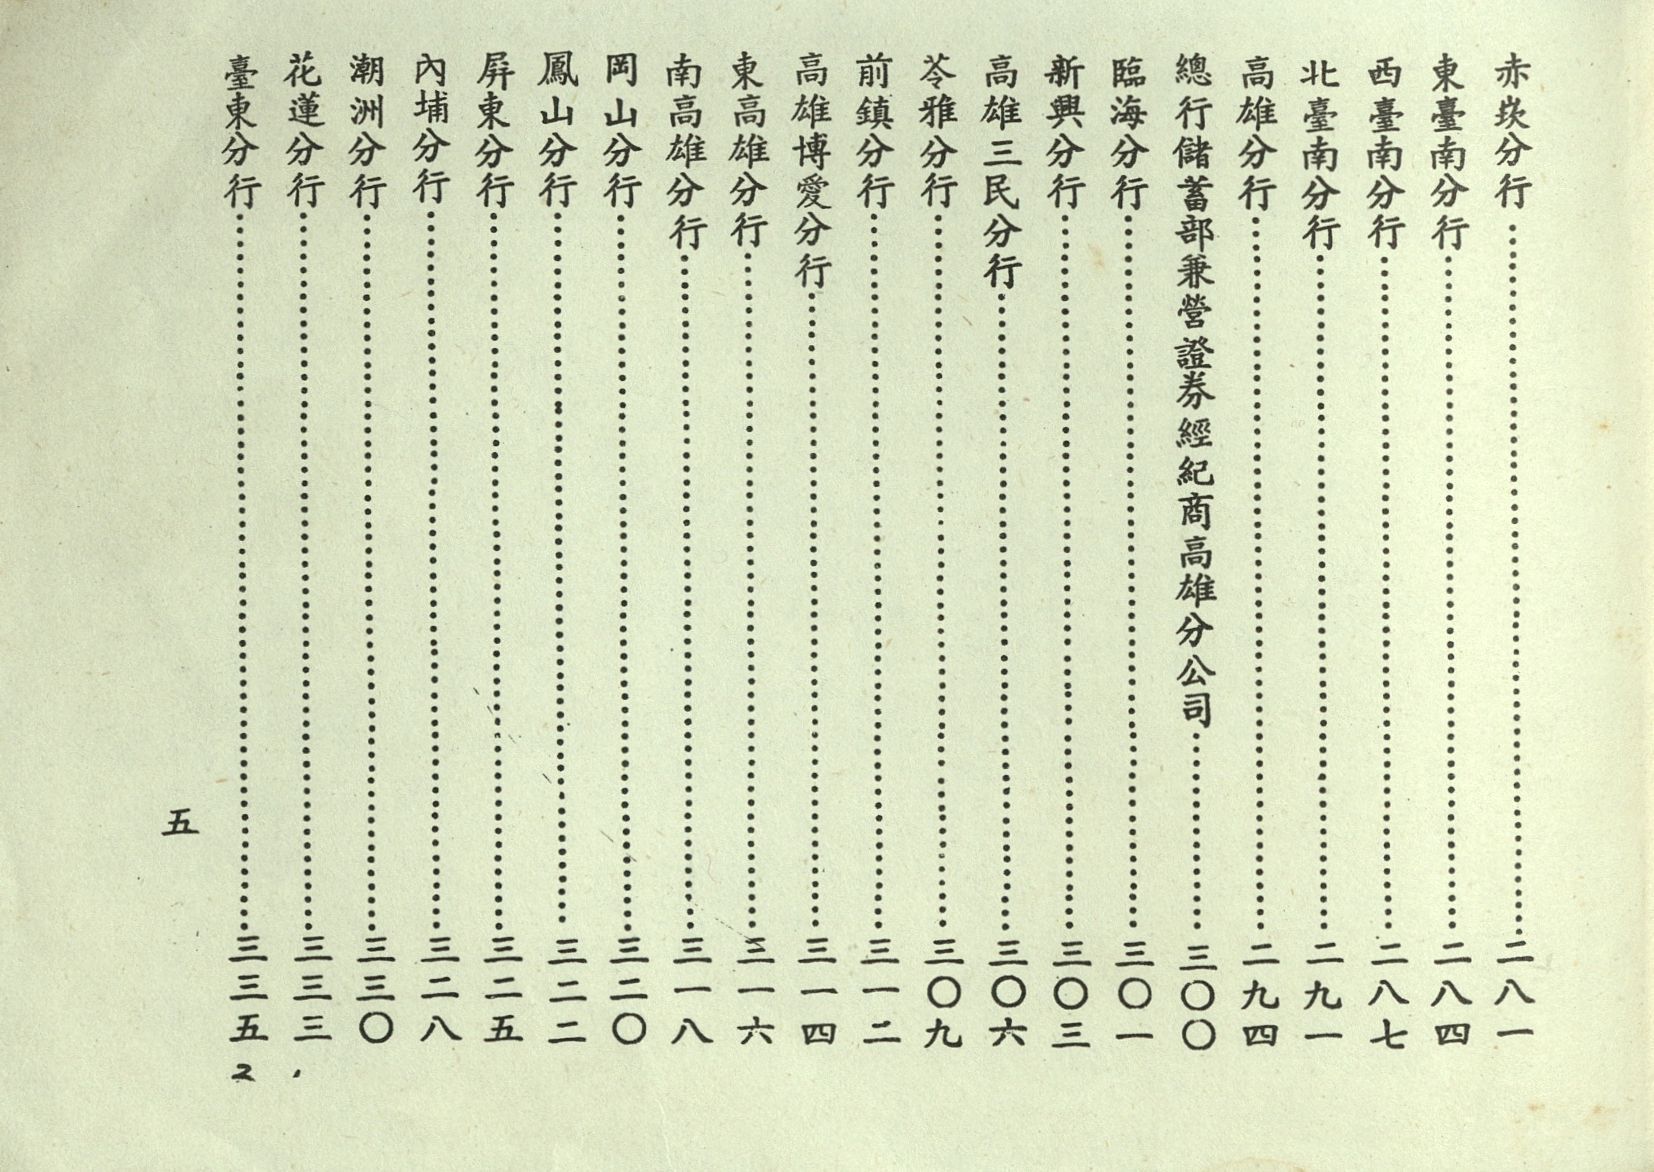 赤崁分行⋯⋯⋯⋯⋯⋯⋯⋯二八一
東臺南分行⋯⋯⋯⋯⋯⋯⋯⋯二八四
西臺南分行⋯⋯⋯⋯⋯⋯⋯⋯二八七
北臺南分行⋯⋯⋯⋯⋯⋯⋯⋯二九一
高雄分行⋯⋯⋯⋯⋯⋯⋯⋯二九四
總行儲蓄部兼營證券經紀商高雄分公司⋯⋯⋯⋯三〇〇
臨海分行⋯⋯⋯⋯⋯⋯⋯⋯三〇一
新興分行⋯⋯⋯⋯⋯⋯⋯⋯三〇三
高雄三民分行⋯⋯⋯⋯⋯⋯⋯⋯三〇六
苓雅分行⋯⋯⋯⋯⋯⋯⋯⋯三〇九
前鎮分行⋯⋯⋯⋯⋯⋯⋯⋯三一二
高雄博愛分行⋯⋯⋯⋯⋯⋯⋯⋯三一四
東高雄分行⋯⋯⋯⋯⋯⋯⋯⋯三一六
南高雄分行⋯⋯⋯⋯⋯⋯⋯⋯三一八
岡山分行⋯⋯⋯⋯⋯⋯⋯⋯三二〇
鳳山分行⋯⋯⋯⋯⋯⋯⋯⋯三二二
屏東分行⋯⋯⋯⋯⋯⋯⋯⋯三二五
內埔分行⋯⋯⋯⋯⋯⋯⋯⋯三二八
潮洲分行⋯⋯⋯⋯⋯⋯⋯⋯三三〇
花蓮分行⋯⋯⋯⋯⋯⋯⋯⋯三三三
臺東分行⋯⋯⋯⋯⋯⋯⋯⋯三三五
2
五